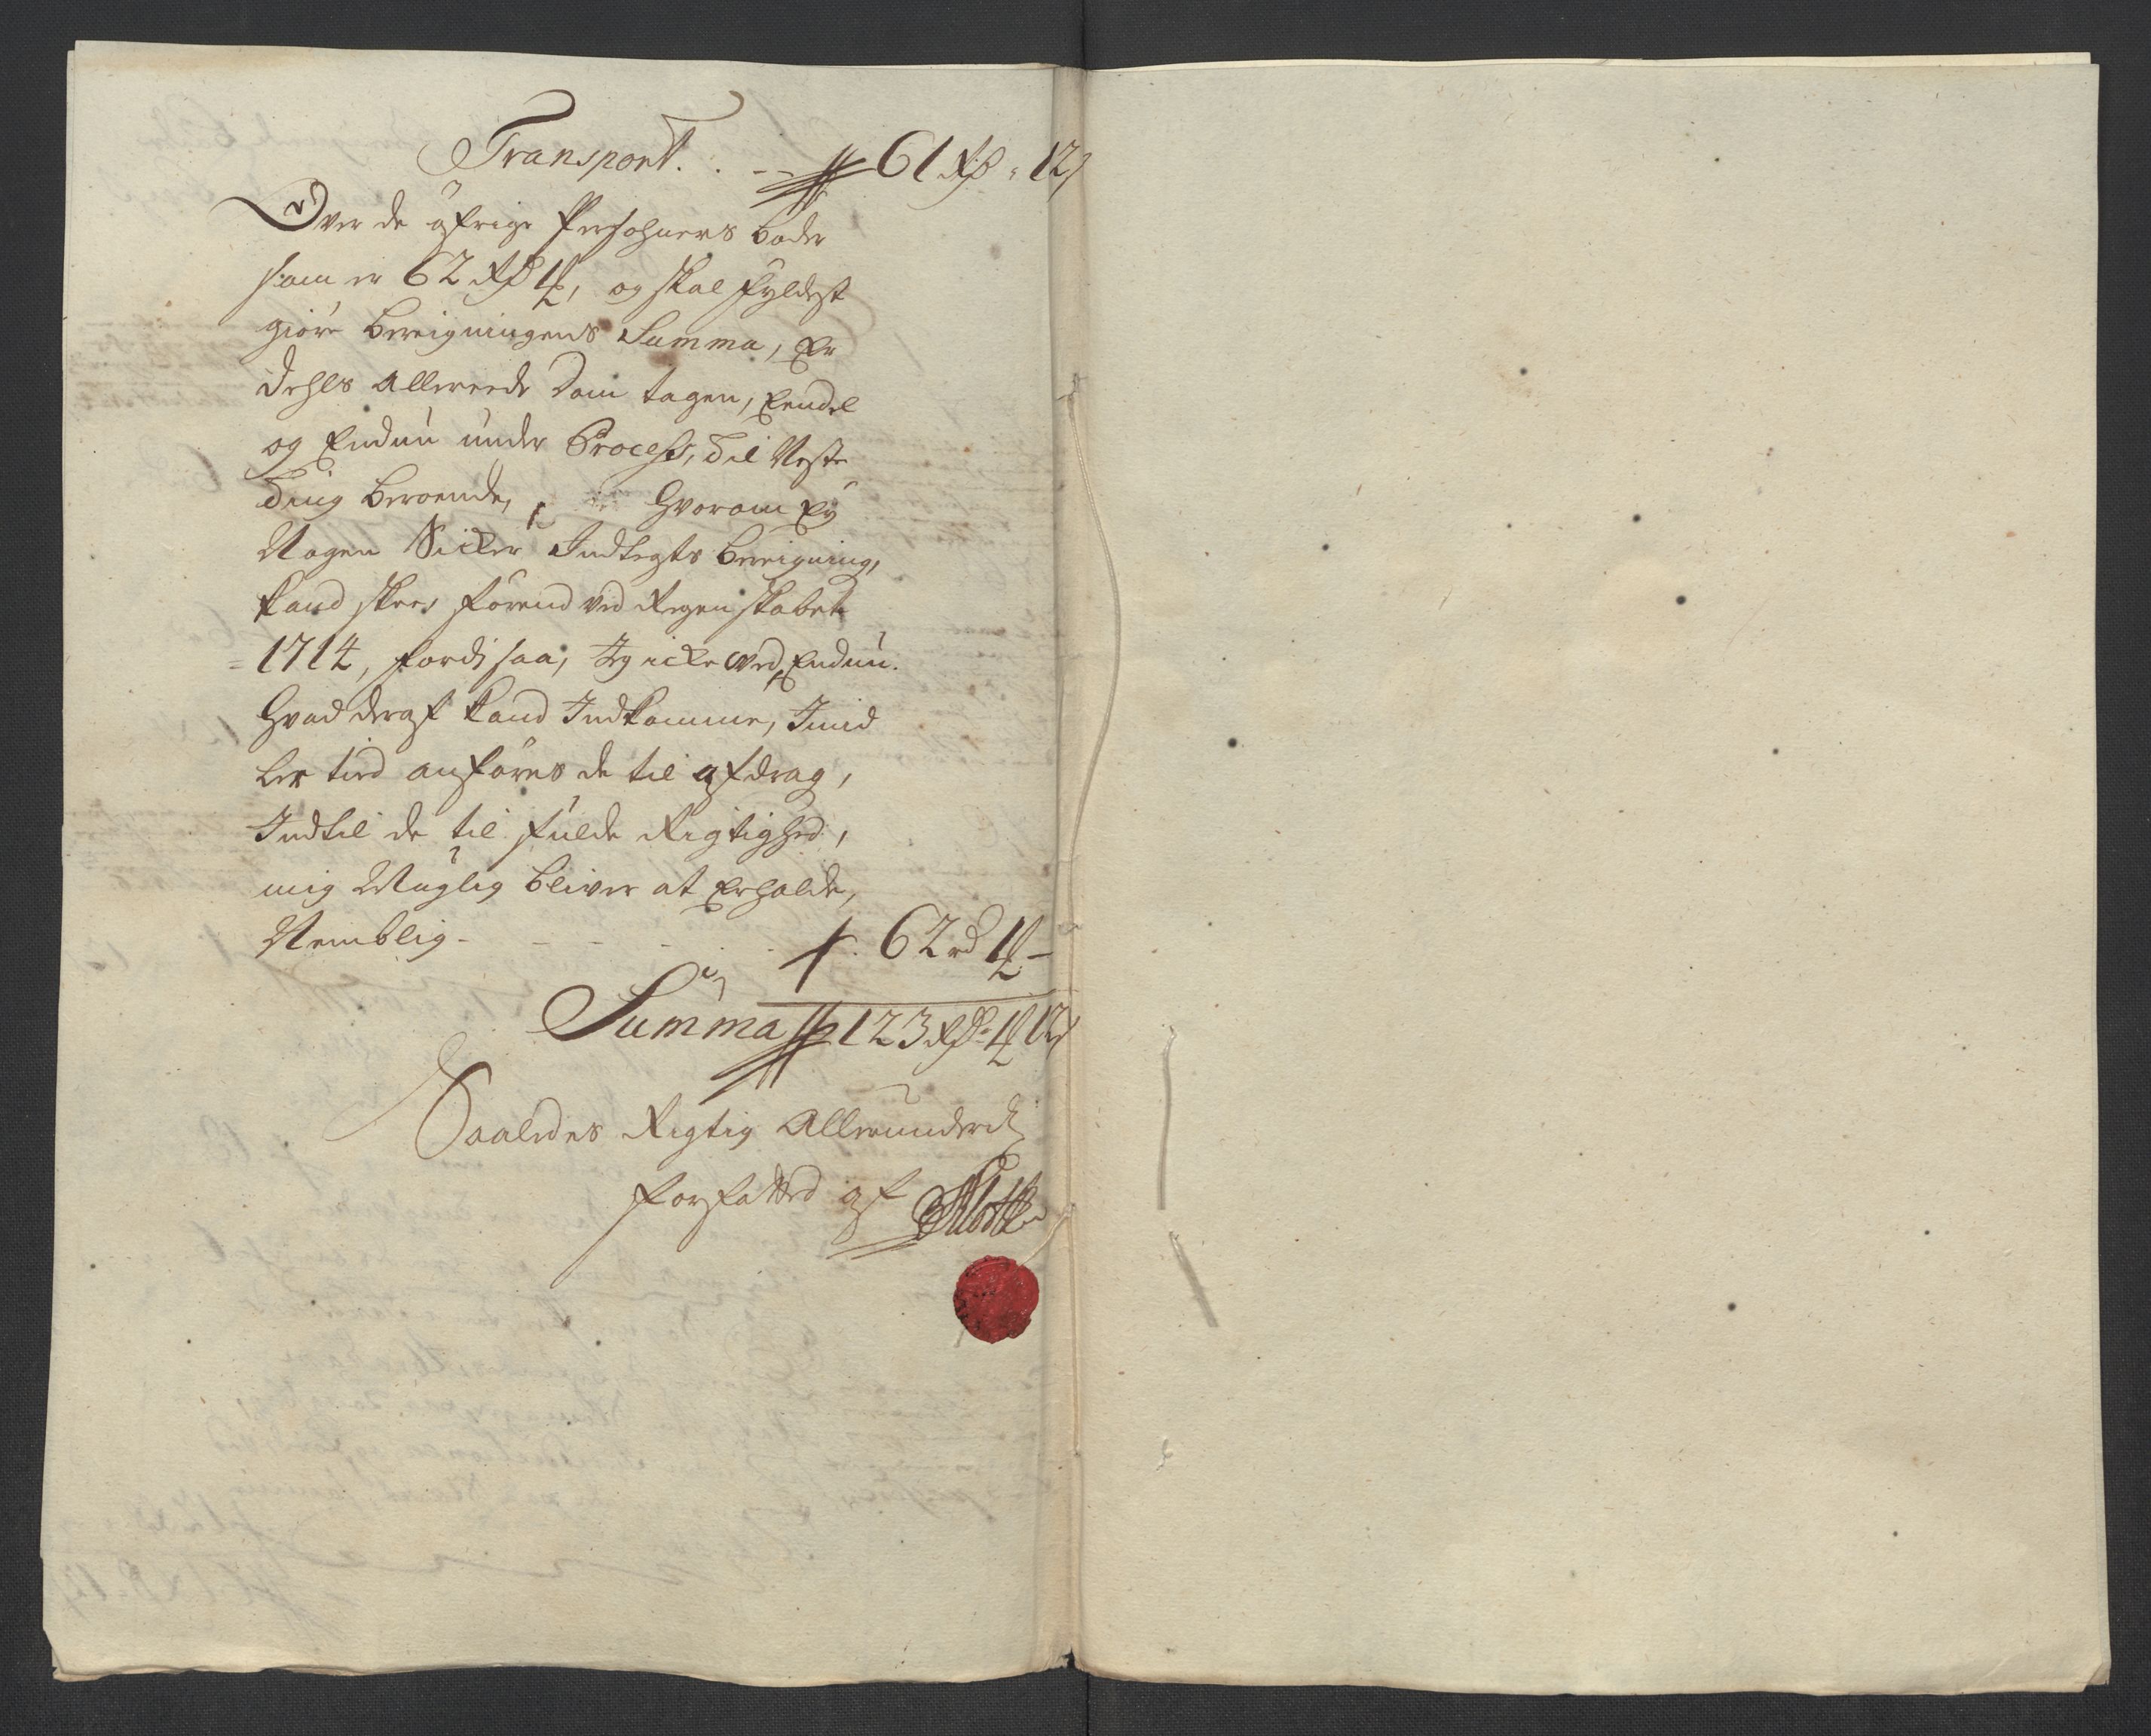 Transport. . -- 61 Rd - 12
Over de øfrige Persohners bøder
som er 62 Rd 4, og skal fyldest
giøre bereigningens Summa, Er
dehls allereede Dom tagen, Eendel
og Endnu under Process, til Neste
ting beroende, hvorom Ey
Nogen Sicker Indtegts bereigning,
kand skee, førend ved Regenskabet
1714, fordi saa, Jeg icke ved Endnu.
hvad deraf kand Indkomme, Imid
ler tid anføres de til afdrag,
Indtil de til fulde Rigtighed,
mig Muglig bliver at Erholde,
Nemblig - - - - 62 rd 4 -
Summa 123 Rd 4 12
Saaledes Rigtig Allerunderd:
forfatted af